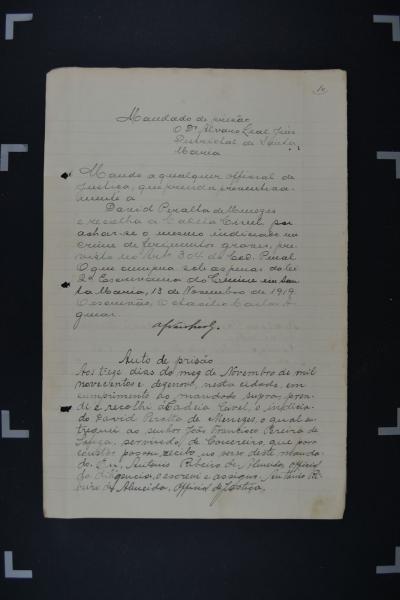 Mandado de prisão
O Dr Alvaro Leal, Juiz
Districtal de Santa
Maria
Mando a qualquer official de
Justiça, que prenda incontinen-
mente a
David Peralta de Menezes
e recolha a Cadeia Civil por
achar-se o mesmo indiciado no
crime de ferimentos graves, pre-
visto no Art 304 do Cod. Penal
O que cumpra sob as penas da lei
2º Escrivaninha do Crime em San-
ta Maria, 13 de Novembro de 1919
O escrivão, Octacilio Carlos A-
guiar.
Auto de prisão
Aos treze dias do mez de Novembro de mil
novecentos e dezenove, nesta cidade, em
cumprimento ao mandado supra, pren-
di e recolhi a Cadeia Civel, o indicia-
do David Peralta de Menezes, o qual en-
treguei ao senhor João Francisco Pereira de
Souza, servindo, de Carcereiro, que para
constar passou recibo no verso deste manda-
do. Eu, Antonio Ribeiro de Almeida, official
de diligencia, o escrevi e assigno. Antonio Ri-
beiro de Almeida, Official de Justiça,